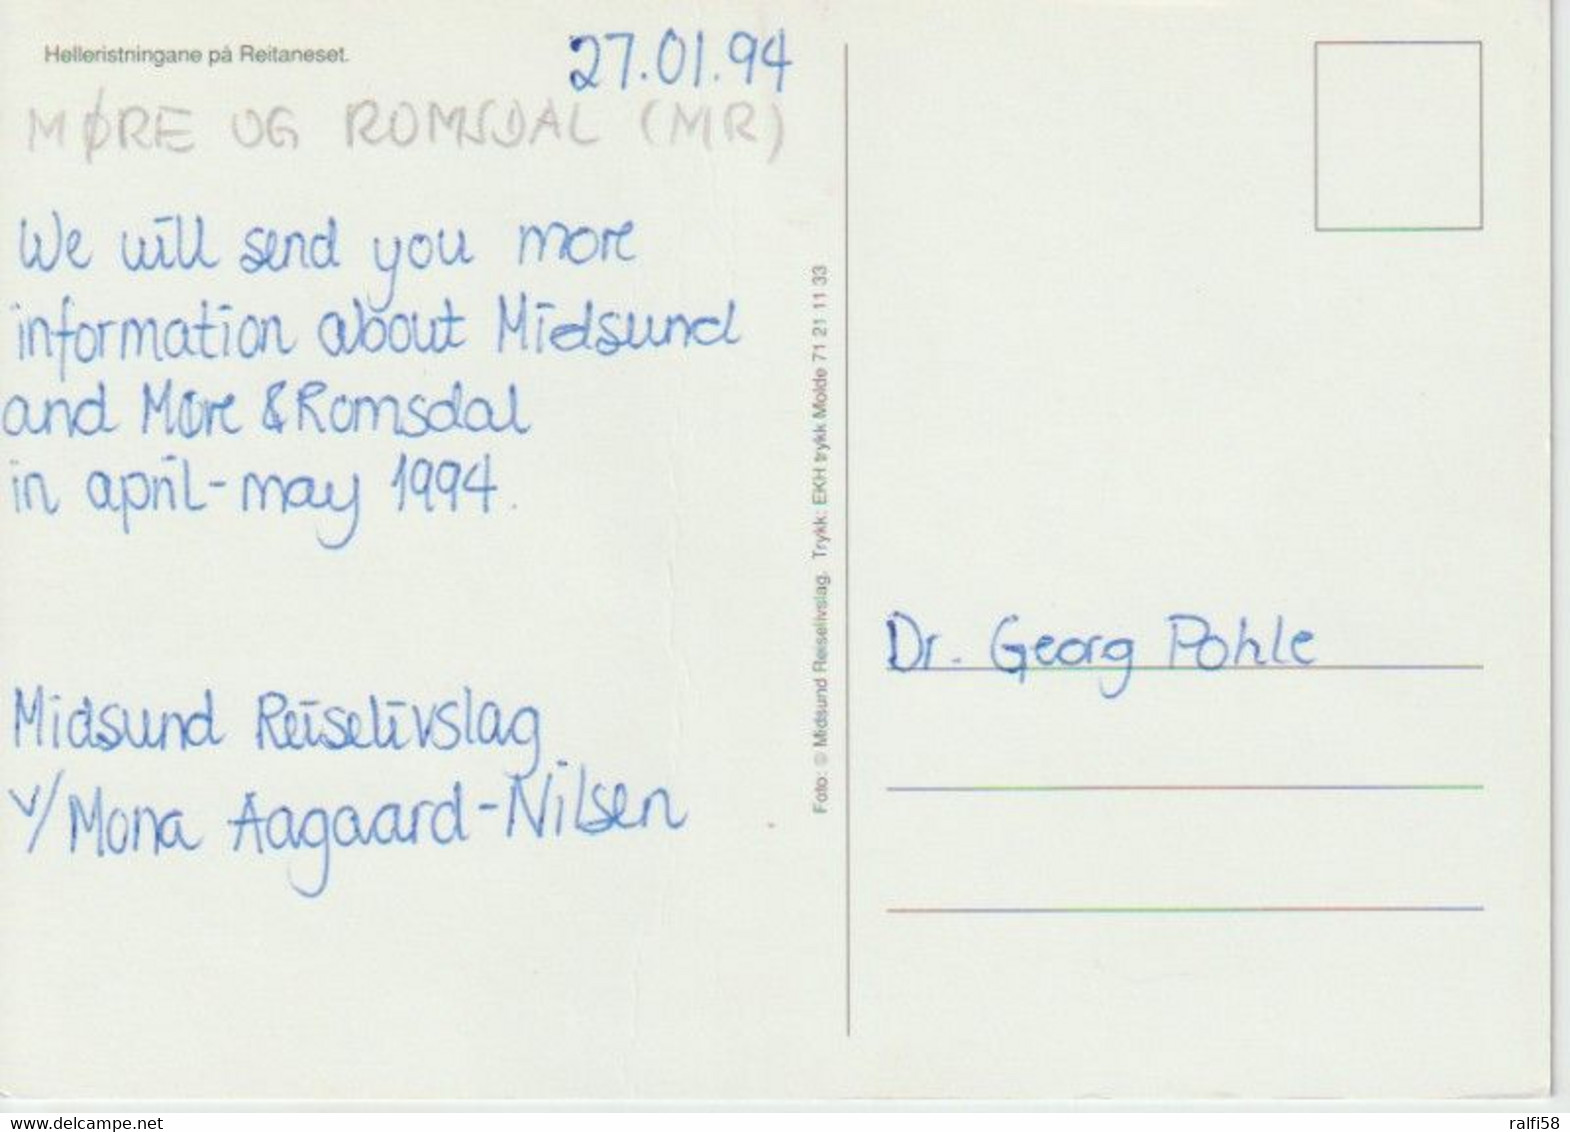 Helleristningane på Reitaneset.
27.01.94
MØRE OG ROMSDAL (MR)
We will send you more
information about Midsund
and Møre & Romsdal
in april-may 1994.
Midsund Reiselivslag
v/Mona Aagaard-Nilsen
Foto: © Midsund Reiselivslag. Trykk: EKH trykk Molde 71 21 11 33
Dr. Georg Pohle
www.delcampe.net
ralfi58